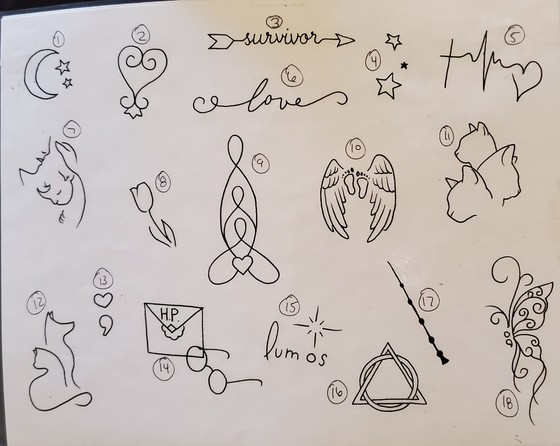 1
2
3
survivor
4
5
6
love
7
8
9
10
11
12
13
H.P.
14
15
lumos
16
17
18